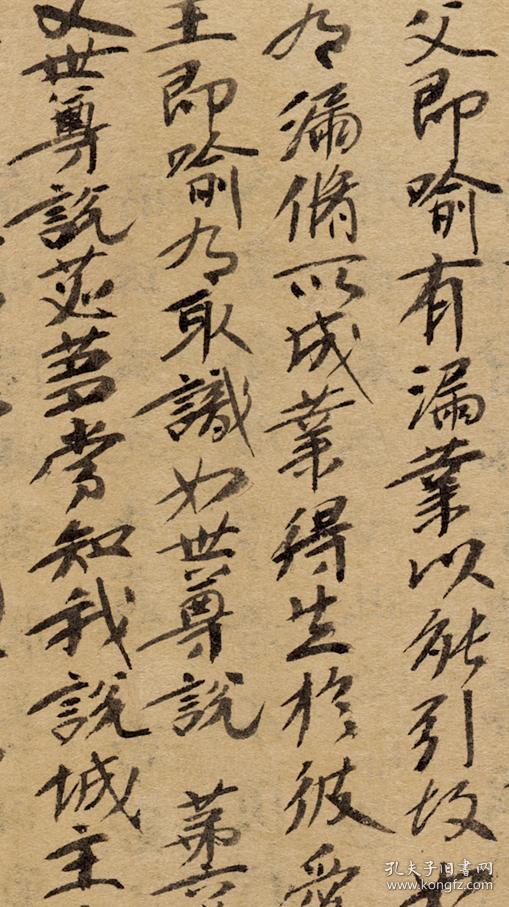 父即喻有漏業以能引故
為漏脩所成業得生於彼愛
王即喻為取識如世尊說 第六
又世尊說苾蒭當知我說城主
孔夫子旧书网
www.kongfz.com